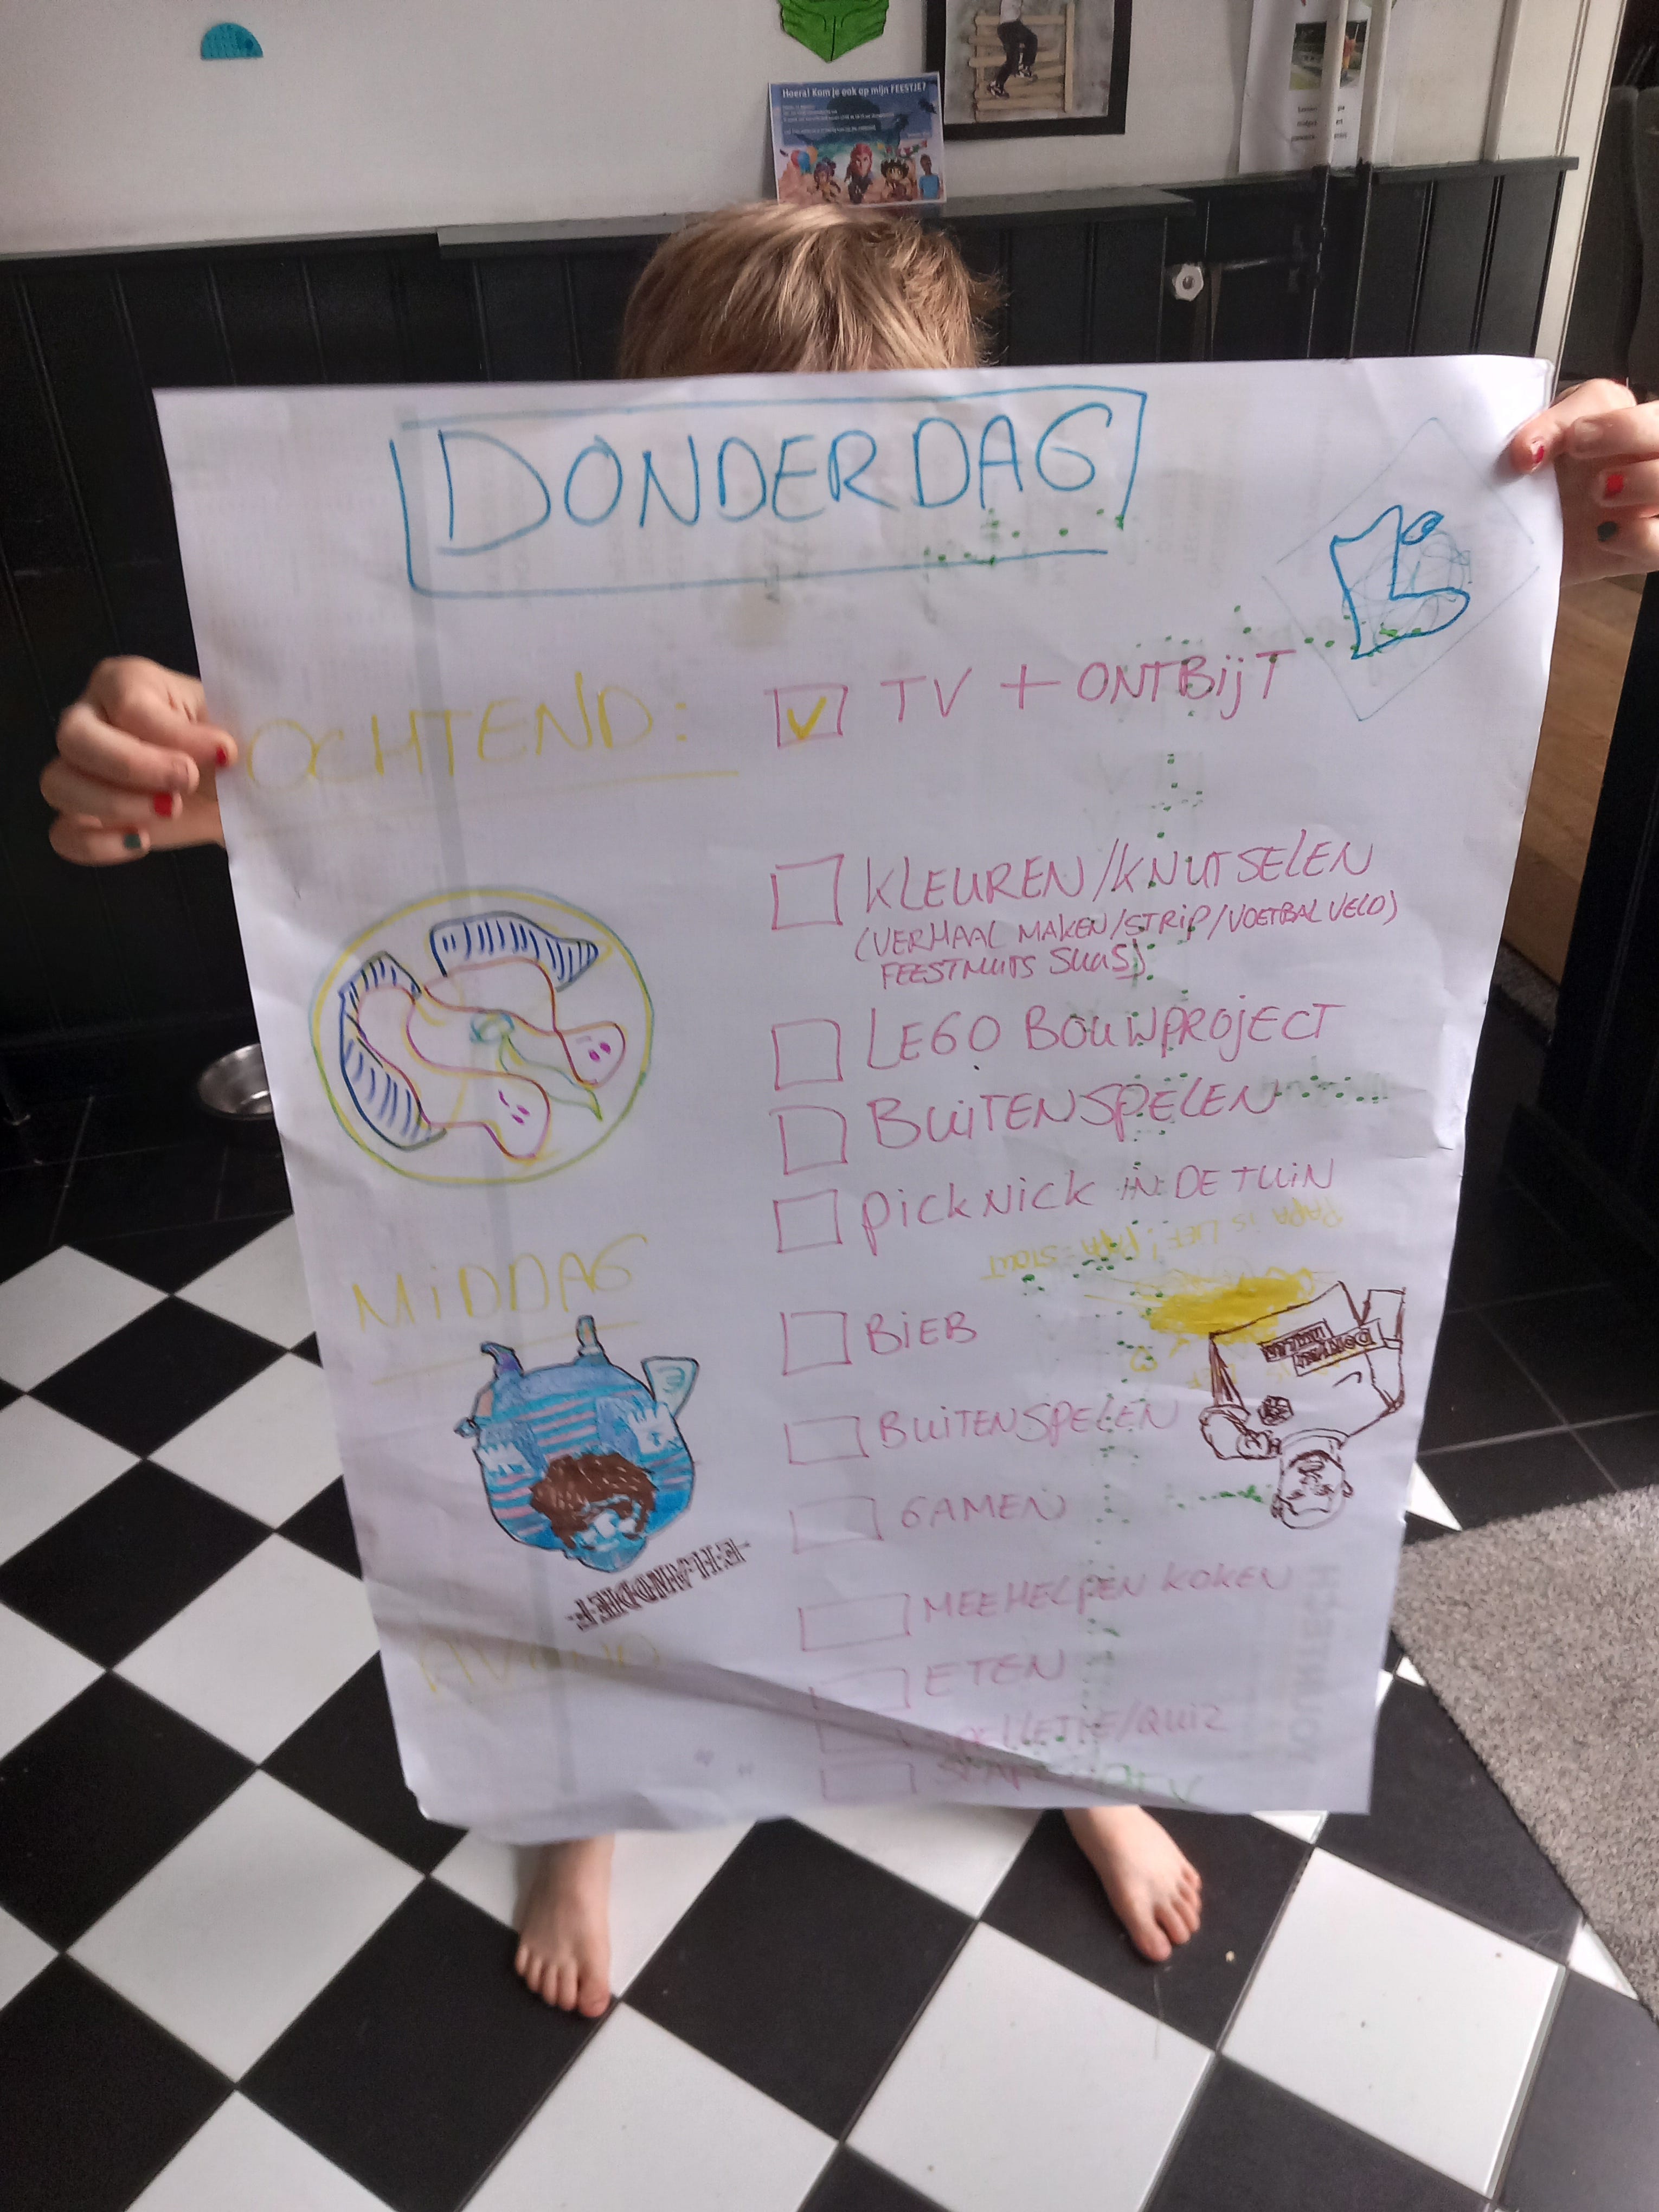 Hoera! Kom je ook op mijn FEESTJE?
DONDERDAG
OCHTEND:
TV + ONTBIJT
KLEUREN/KNUTSELEN
(VERHAAL MAKEN/STRIP/VOETBALVELD)
FEESTMUTS SUUS)
LEGO BOUWPROJECT
BUITENSPELEN
PICKNICK IN DE TUIN
PAPA IS LIEF! PAPA = STOUT
MIDDAG
BIEB
BUITENSPELEN
GAMEN
MEEHELPEN KOKEN
AVOND
ETEN
SPELLETJE/QUIZ
TV